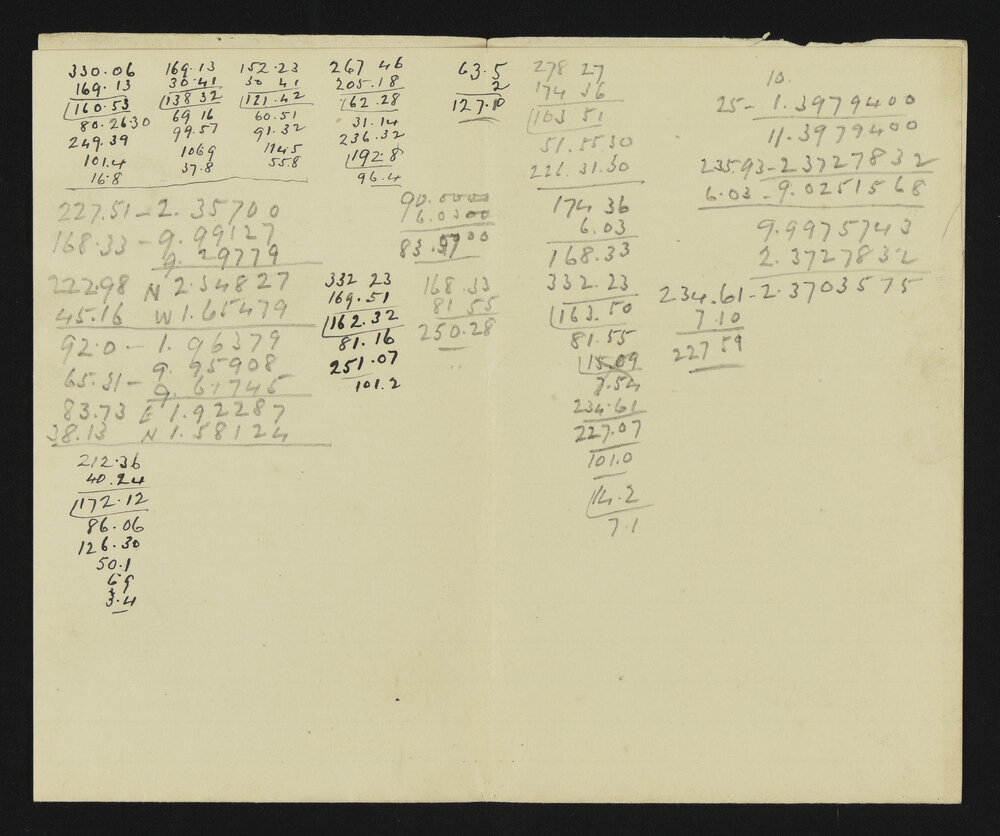 330.06
169.13
160.53
80.26.30
249.39
101.4
16.8
169.13
30.41
138 32
69 16
99.57
1069
37.8
152.23
30 41
121.42
60.51
91.32
114.5
55.8
267 46
205.18
62.28
31.14
236.32
192.8
96.4
63.5
2
127.10
227.51 - 2.35700
168.33 - 9.99127
9.29779
222.98 N 2.34827
45.16 W 1.65479
92.0 - 1.96379
9.95908
65.31 - 9.61745
83.73 E 1.92287
38.13 N 1.58124
212.36
40.24
172.12
86.06
126.30
50.1
69
3.4
332 23
169.51
162.32
81.16
251.07
101.2
90.00
6.03
83.57
168.33
81 55
250.28
278 27
174 36
103 51
51.55 30
226.31.30
174 36
6.03
168.33
332.23
163.50
81.55
15.09
7.54
234.61
227.07
101.0
14.2
7.1
10.
25 - 1.3979400
11.3979400
235.93 - 2.3727832
6.03 - 9.0251568
9.9975743
2.3727832
234.61 - 2.3703575
7.10
227 59